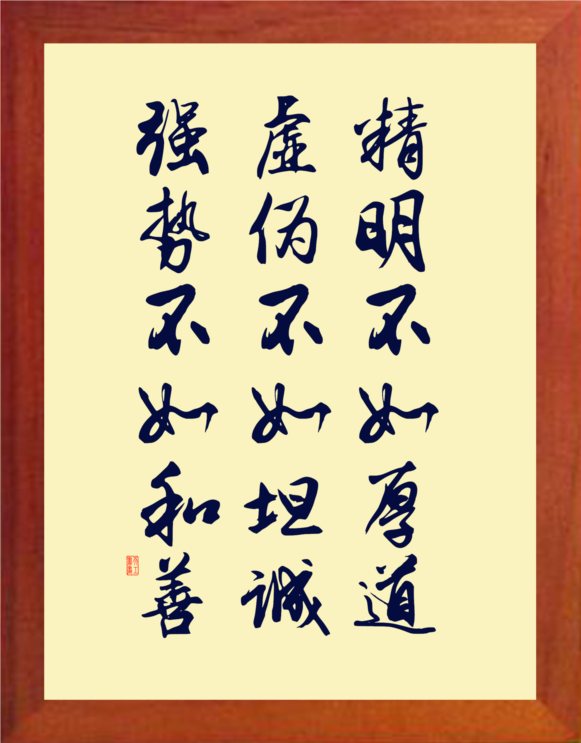 精明不如厚道
虚伪不如坦诚
强势不如和善